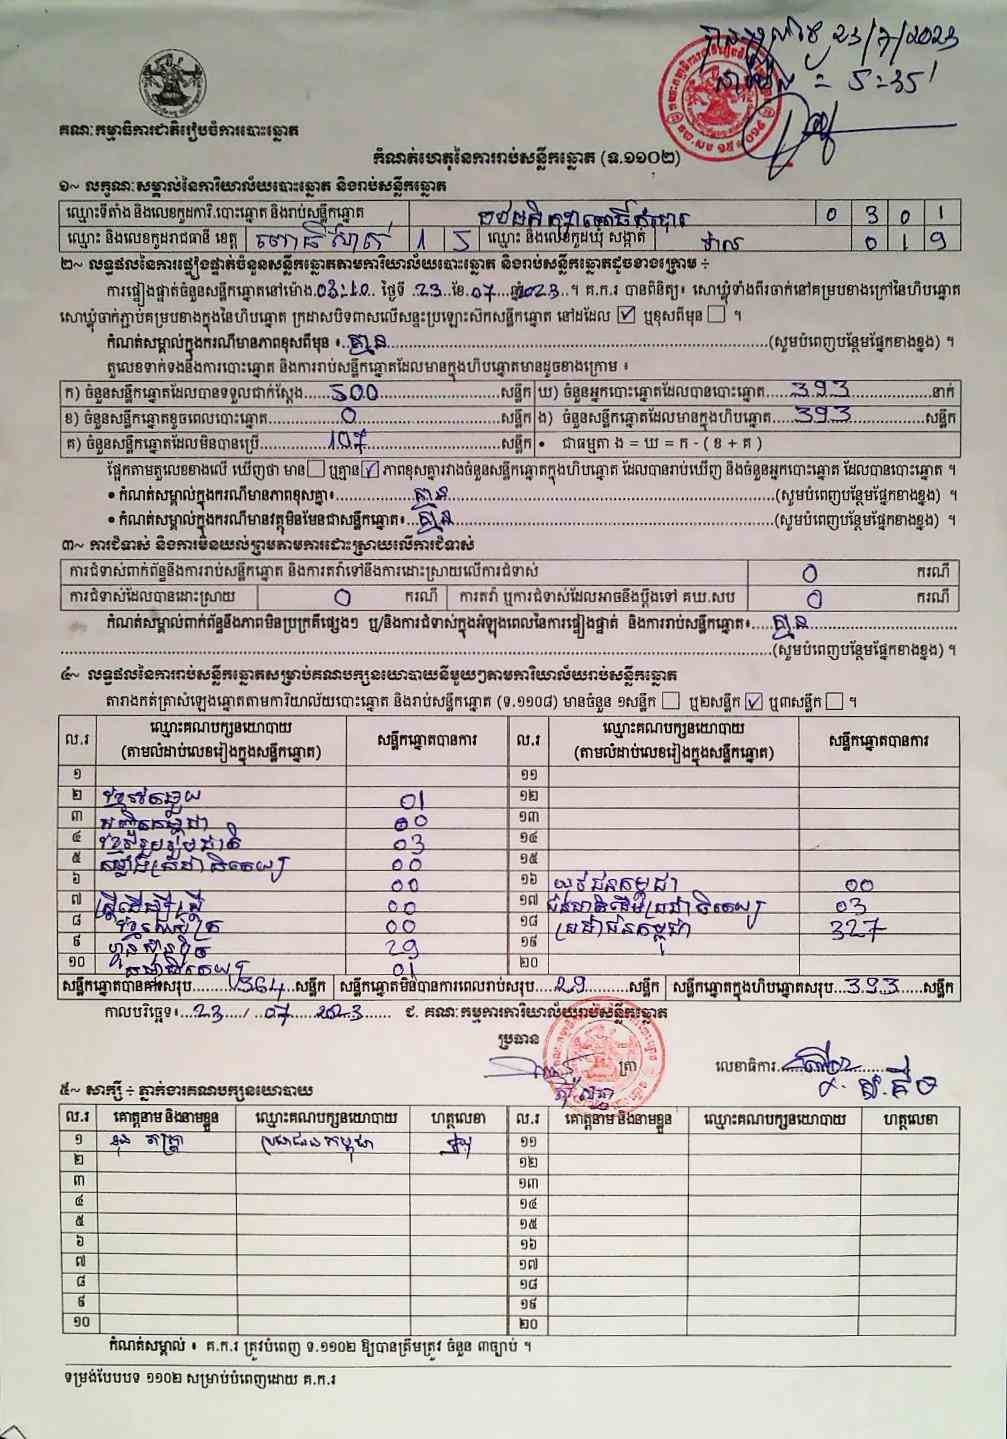 23/7/2023
= 5:35'
គណៈកម្មាធិការជាតិរៀបចំការបោះឆ្នោត
កំណត់ហេតុនៃការរាប់សន្លឹកឆ្នោត (ទ.១១០២)
១~ លក្ខណៈសម្គាល់នៃការិយាល័យបោះឆ្នោត និងរាប់សន្លឹកឆ្នោត
ឈ្មោះទីតាំង និងលេខកូដការិ.បោះឆ្នោត និងរាប់សន្លឹកឆ្នោត 0 3 0 1
ឈ្មោះ និងលេខកូដរាជធានី ខេត្ត ពោធិ៍សាត់ 1 5 ឈ្មោះ និងលេខកូដឃុំ សង្កាត់ 0 1 9
២~ លទ្ធផលនៃការផ្ទៀងផ្ទាត់ចំនួនសន្លឹកឆ្នោតតាមការិយាល័យបោះឆ្នោត និងរាប់សន្លឹកឆ្នោតដូចខាងក្រោម ÷
ការផ្ទៀងផ្ទាត់ចំនួនសន្លឹកឆ្នោតនៅម៉ោង 03:10 ថ្ងៃទី 23 ខែ 07 ឆ្នាំ 2023 ។ គ.ក.រ បានពិនិត្យ៖ សោឃ្លុំទាំងពីរចាក់នៅគម្របខាងក្រៅនៃហិបឆ្នោត
សោឃ្លុំចាក់ភ្ជាប់គម្របខាងក្នុងនៃហិបឆ្នោត ក្រដាសបិទពាសលើសន្ទះប្រឡោះស៊កសន្លឹកឆ្នោត នៅដដែល ☑ ឬខុសពីមុន ☐ ។
កំណត់សម្គាល់ក្នុងករណីមានភាពខុសពីមុន ៖ គ្មាន (សូមបំពេញបន្ថែមផ្នែកខាងខ្នង) ។
តួលេខទាក់ទងនឹងការបោះឆ្នោត និងការរាប់សន្លឹកឆ្នោតដែលមានក្នុងហិបឆ្នោតមានដូចខាងក្រោម ៖
ក) ចំនួនសន្លឹកឆ្នោតដែលបានទទួលជាក់ស្តែង 500 សន្លឹក ឃ) ចំនួនអ្នកបោះឆ្នោតដែលបានបោះឆ្នោត 393 នាក់
ខ) ចំនួនសន្លឹកឆ្នោតខូចពេលបោះឆ្នោត 0 សន្លឹក ង) ចំនួនសន្លឹកឆ្នោតដែលមានក្នុងហិបឆ្នោត 393 សន្លឹក
គ) ចំនួនសន្លឹកឆ្នោតដែលមិនបានប្រើ 107 សន្លឹក • ជាធម្មតា ង = ឃ = ក - ( ខ + គ )
ផ្អែកតាមតួលេខខាងលើ ឃើញថា មាន ☐ ឬគ្មាន ☑ ភាពខុសគ្នារវាងចំនួនសន្លឹកឆ្នោតក្នុងហិបឆ្នោត ដែលបានរាប់ឃើញ និងចំនួនអ្នកបោះឆ្នោត ដែលបានបោះឆ្នោត ។
• កំណត់សម្គាល់ក្នុងករណីមានភាពខុសគ្នា៖ គ្មាន (សូមបំពេញបន្ថែមផ្នែកខាងខ្នង) ។
• កំណត់សម្គាល់ក្នុងករណីមានវត្ថុមិនមែនជាសន្លឹកឆ្នោត៖ គ្មាន (សូមបំពេញបន្ថែមផ្នែកខាងខ្នង) ។
៣~ ការជំទាស់ និងការមិនយល់ព្រមតាមការដោះស្រាយលើការជំទាស់
ការជំទាស់ពាក់ព័ន្ធនឹងការរាប់សន្លឹកឆ្នោត និងការតវ៉ាទៅនឹងការដោះស្រាយលើការជំទាស់ 0 ករណី
ការជំទាស់ដែលបានដោះស្រាយ 0 ករណី ការតវ៉ា ឬការជំទាស់ដែលអាចនឹងប្តឹងទៅ គឃ.សប 0 ករណី
កំណត់សម្គាល់ពាក់ព័ន្ធនឹងភាពមិនប្រក្រតីផ្សេងៗ ឬ/និងការជំទាស់ក្នុងអំឡុងពេលនៃការផ្ទៀងផ្ទាត់ និងការរាប់សន្លឹកឆ្នោត៖ គ្មាន
(សូមបំពេញបន្ថែមផ្នែកខាងខ្នង) ។
៤~ លទ្ធផលនៃការរាប់សន្លឹកឆ្នោតសម្រាប់គណបក្សនយោបាយនីមួយៗតាមការិយាល័យរាប់សន្លឹកឆ្នោត
តារាងកត់ត្រាសំឡេងឆ្នោតតាមការិយាល័យបោះឆ្នោត និងរាប់សន្លឹកឆ្នោត (ទ.១១០៨) មានចំនួន ១សន្លឹក ☐ ឬ២សន្លឹក ☑ ឬ៣សន្លឹក ☐ ។
ល.រ ឈ្មោះគណបក្សនយោបាយ (តាមលំដាប់លេខរៀងក្នុងសន្លឹកឆ្នោត) សន្លឹកឆ្នោតបានការ ល.រ ឈ្មោះគណបក្សនយោបាយ (តាមលំដាប់លេខរៀងក្នុងសន្លឹកឆ្នោត) សន្លឹកឆ្នោតបានការ
១ ១១
២ 01 ១២
៣ 00 ១៣
៤ 03 ១៤
៥ 00 ១៥
៦ 00 ១៦ យុវជនកម្ពុជា 00
៧ ស្ត្រីដើម្បីស្ត្រី 00 ១៧ ជនជាតិដើមប្រជាធិបតេយ្យ 03
៨ 00 ១៨ ប្រជាជនកម្ពុជា 327
៩ ហ្វ៊ុនស៊ិនប៉ិច 29 ១៩
១០ 01 ២០
សន្លឹកឆ្នោតបានការសរុប 364 សន្លឹក សន្លឹកឆ្នោតមិនបានការពេលរាប់សរុប 29 សន្លឹក សន្លឹកឆ្នោតក្នុងហិបឆ្នោតសរុប 393 សន្លឹក
កាលបរិច្ឆេទ៖ 23 / 07 2023 ជ. គណៈកម្មការការិយាល័យរាប់សន្លឹកឆ្នោត
ប្រធាន
ត្រា លេខាធិការ
៥~ សាក្សី ÷ ភ្នាក់ងារគណបក្សនយោបាយ
ល.រ គោត្តនាម និងនាមខ្លួន ឈ្មោះគណបក្សនយោបាយ ហត្ថលេខា ល.រ គោត្តនាម និងនាមខ្លួន ឈ្មោះគណបក្សនយោបាយ ហត្ថលេខា
១ ប្រជាជនកម្ពុជា ១១
២ ១២
៣ ១៣
៤ ១៤
៥ ១៥
៦ ១៦
៧ ១៧
៨ ១៨
៩ ១៩
១០ ២០
កំណត់សម្គាល់ ៖ គ.ក.រ ត្រូវបំពេញ ទ.១១០២ ឱ្យបានត្រឹមត្រូវ ចំនួន ៣ច្បាប់ ។
ទម្រង់បែបបទ ១១០២ សម្រាប់បំពេញដោយ គ.ក.រ